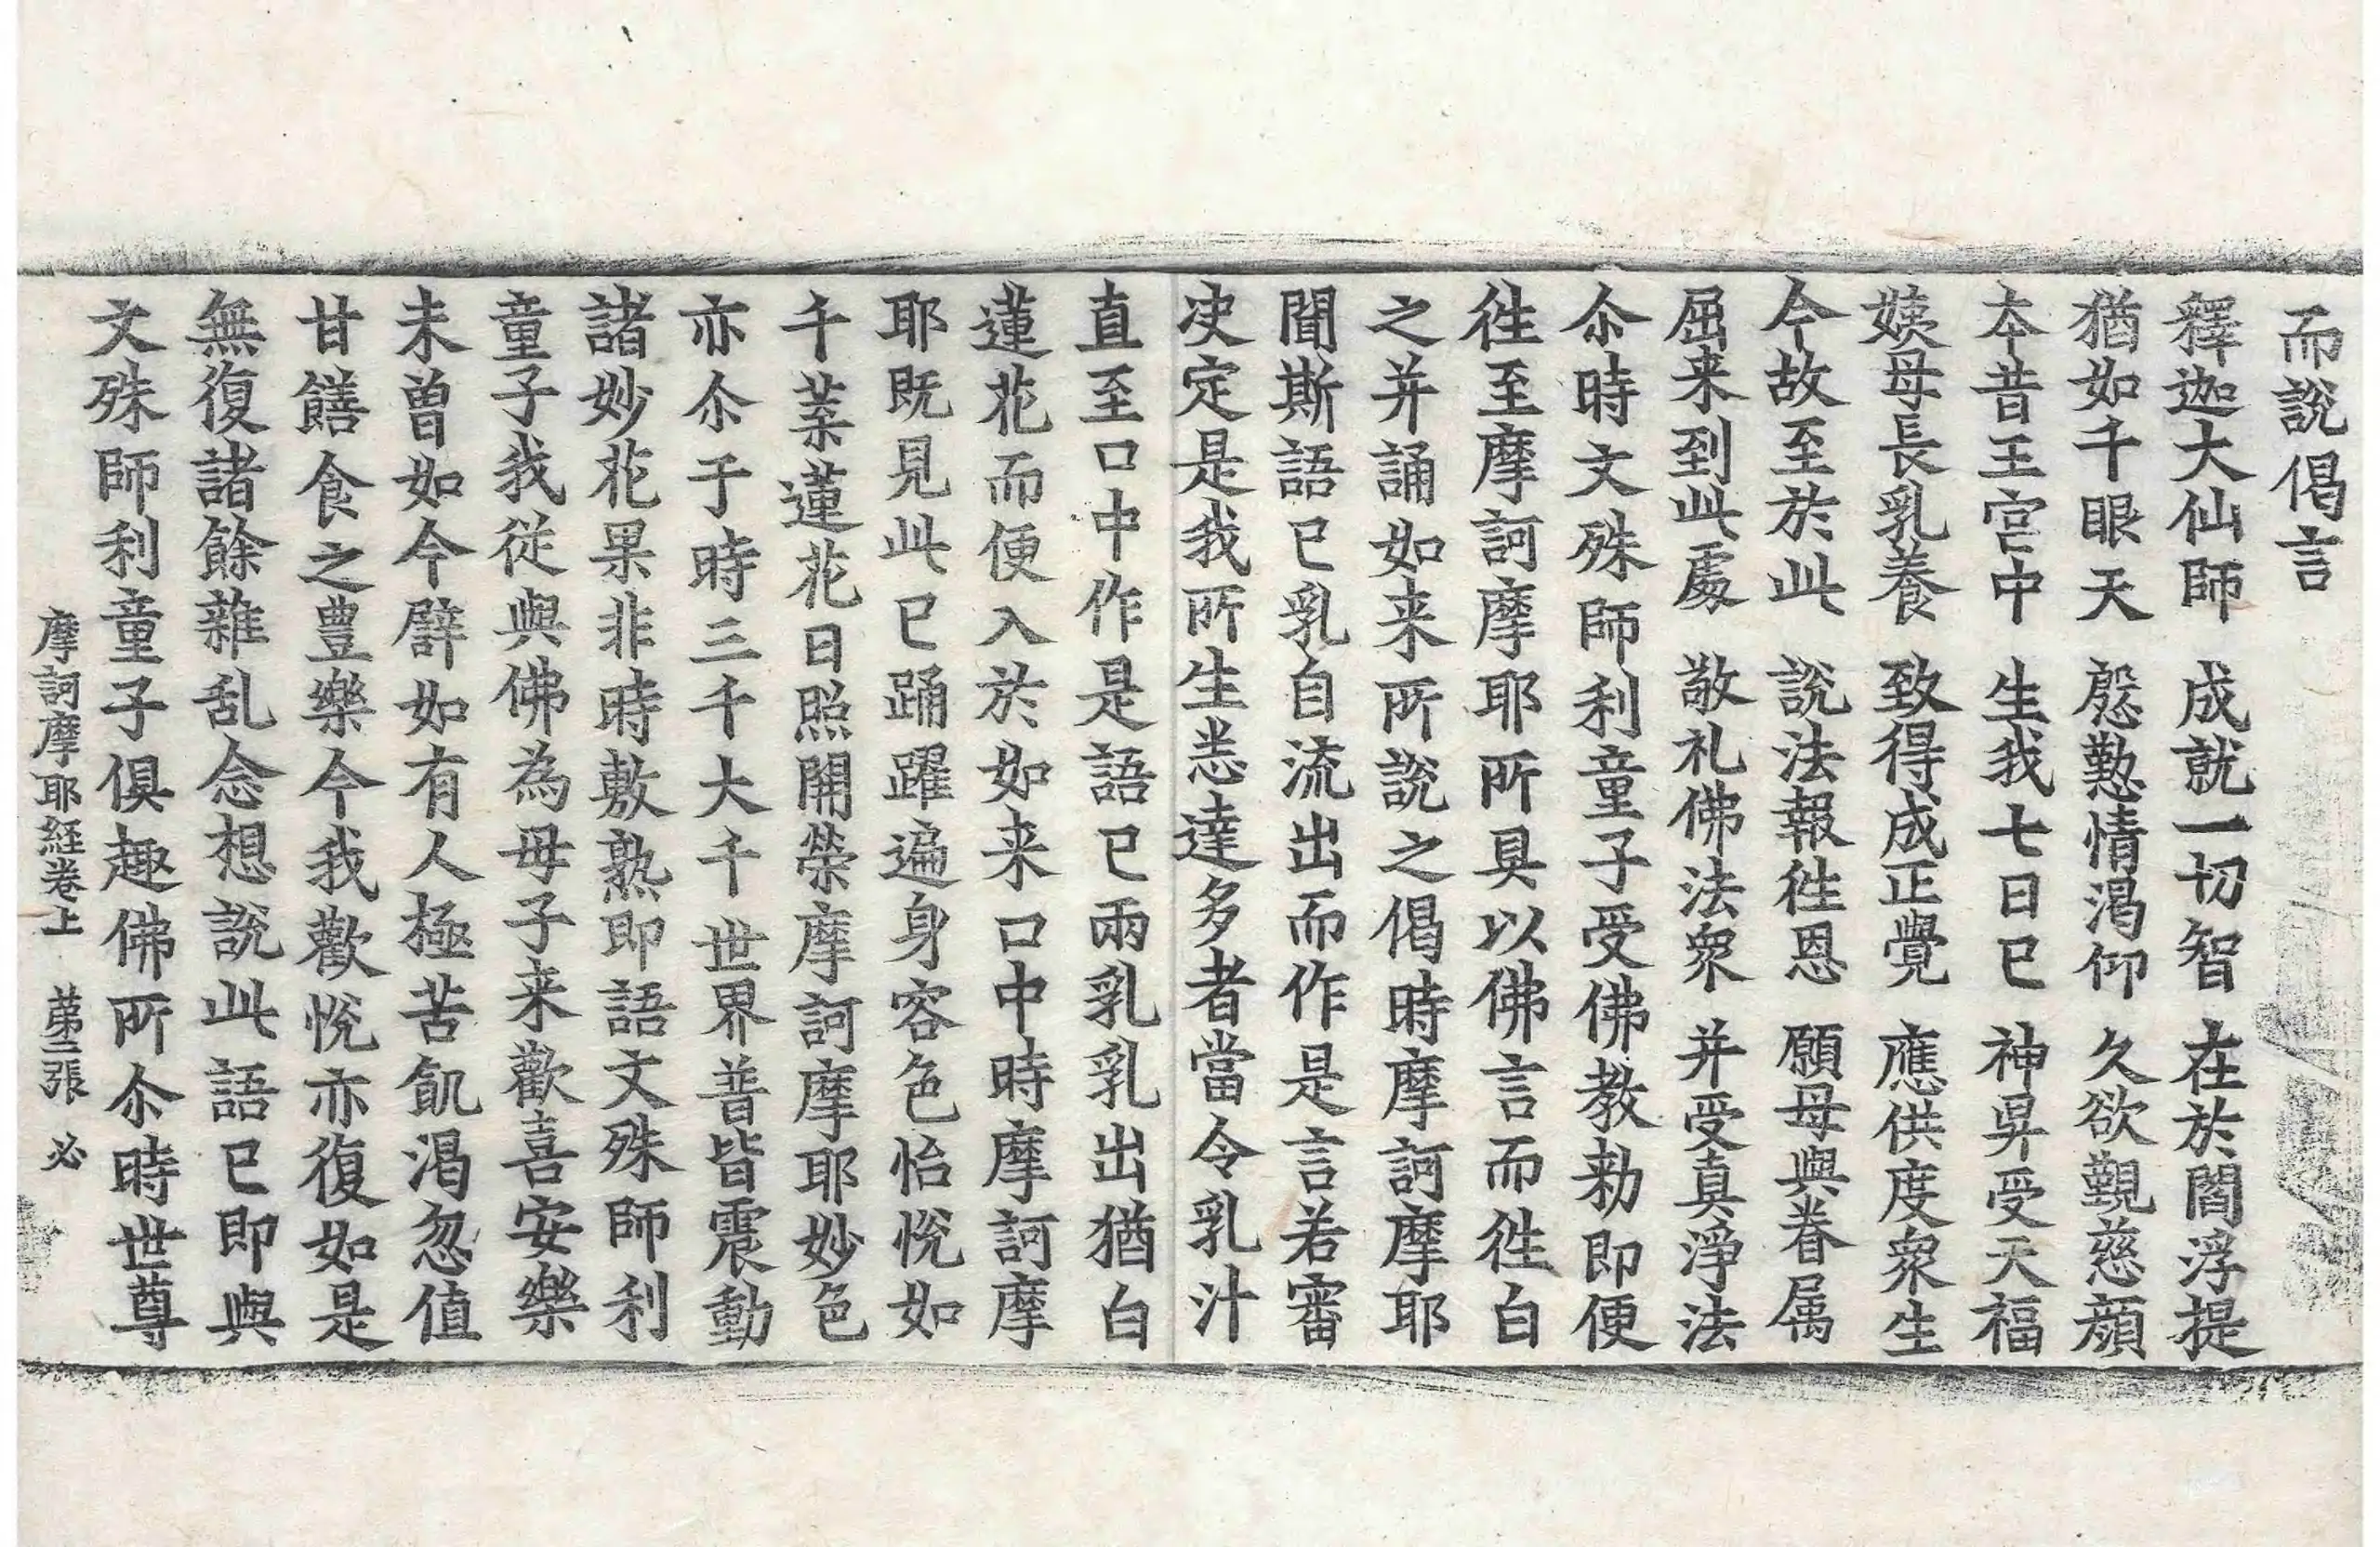 而說偈言
釋迦大仙師　成就一切智　在於閻浮提
猶如千眼天　慇懃情渴仰　久欲覲慈顏
本昔王宮中　生我七日已　神昇受天福
姨母長乳養　致得成正覺　應供度衆生
今故至於此　說法報徃恩　願母與眷属
屈来到此處　敬礼佛法衆　并受真淨法
尒時文殊師利童子受佛教勑即便
徃至摩訶摩耶所具以佛言而徃白
之并誦如来所說之偈時摩訶摩耶
聞斯語已乳自流出而作是言若審
决定是我所生悉達多者當令乳汁
直至口中作是語已兩乳乳出猶白
蓮花而便入於如来口中時摩訶摩
耶既見此已踊躍遍身容色怡悅如
千葉蓮花日照開榮摩訶摩耶妙色
亦尒于時三千大千世界普皆震動
諸妙花果非時敷熟即語文殊師利
童子我從與佛為母子来歡喜安樂
未曾如今譬如有人極苦飢渴忽值
甘饍食之豊樂今我歡悅亦復如是
無復諸餘雜乱念想說此語已即與
文殊師利童子俱趣佛所尒時世尊
摩訶摩耶経卷上　苐二張　必